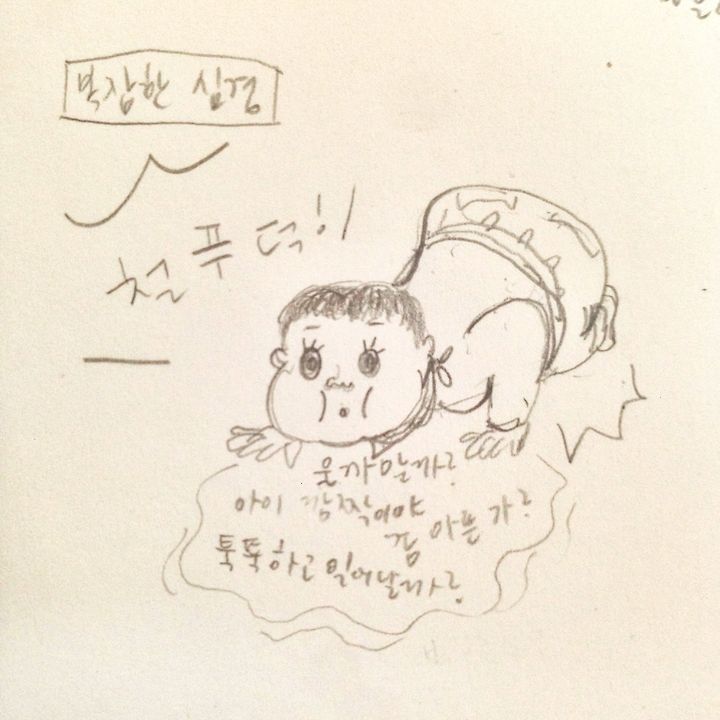 복잡한 심경
철푸덕!!
울까말까?
아이 깜짝이야
좀 아픈가?
툭툭하고 일어날까?